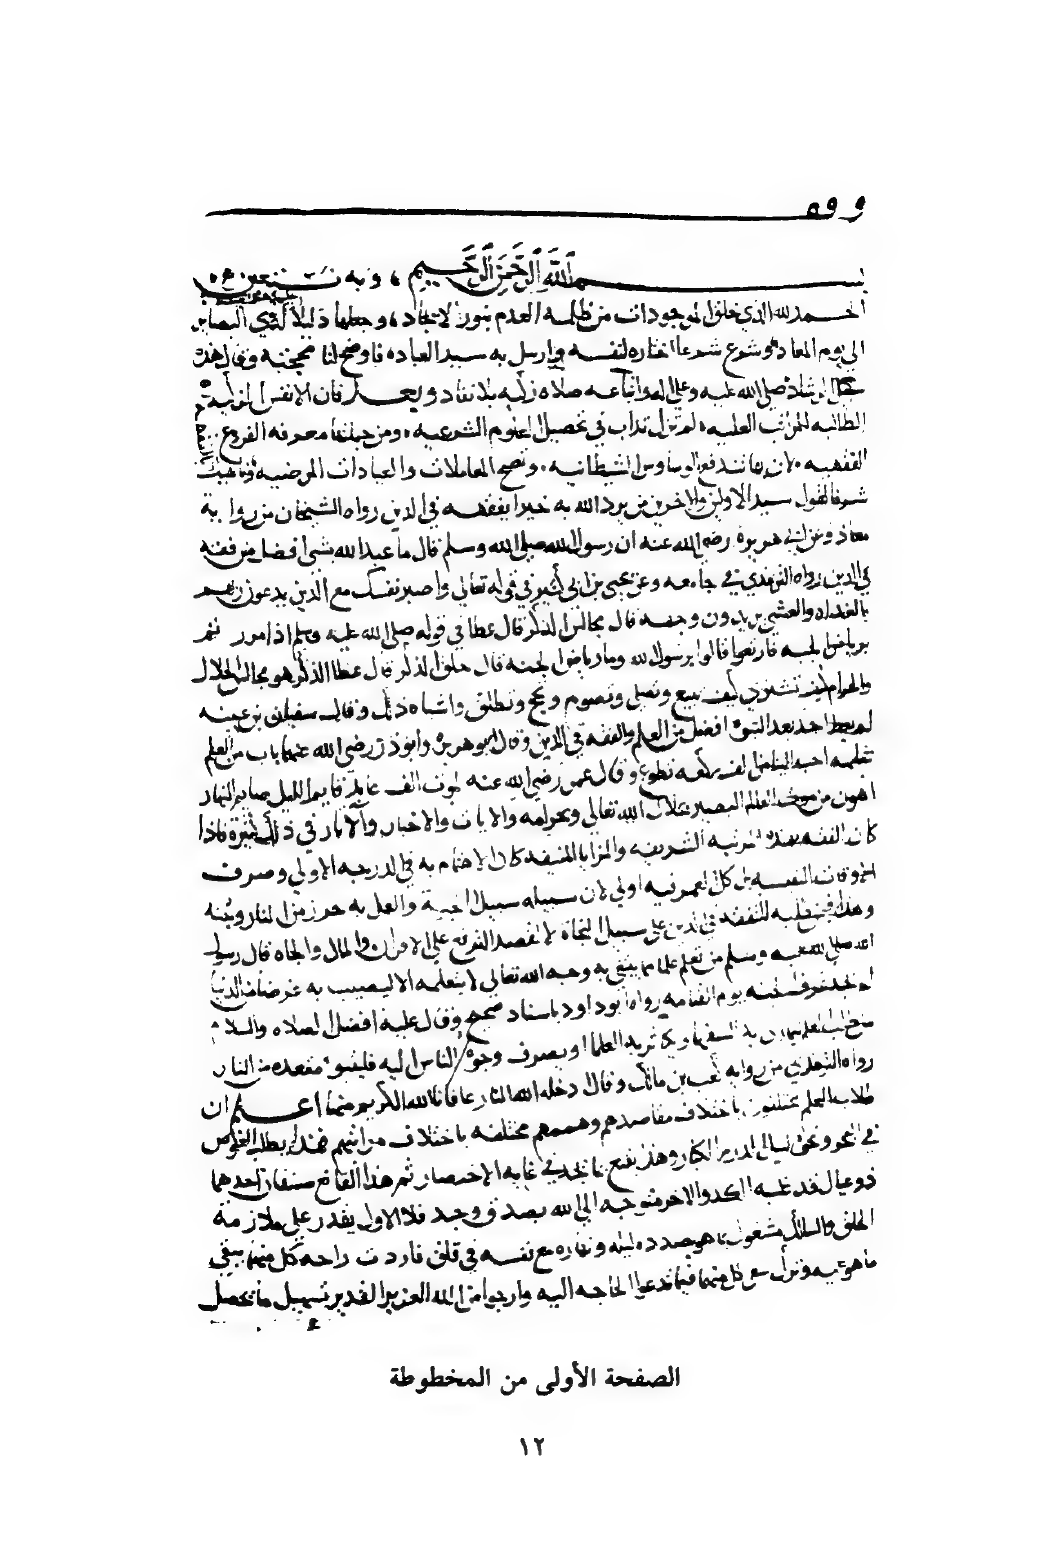 بسم الله الرحمن الرحيم ، وبه نستعين
الحمد لله الذي خلق الموجودات من ظلمه العدم بنور الايجاد ، وجعلها دليلا لذوي البصاير
الى يوم المعاد وشرع شرعا اختاره لنفسه وارسل به سيد العباده فاوضح لنا محجته وقال هذه
سبيل الرشاد صلى الله عليه وعلى اله واتباعه صلاه زاكيه بلا نفاد وبعد فان الانفس الزكية
الطالبه للمراتب العليه ، لم تزل تداب في تحصيل العلوم الشرعيه ، ومن جملتها معرفه الفروع
الفقهيه ، لان بها تندفع الوساوس الشيطانيه ، وتصح المعاملات والعبادات المرضيه وناهيك
شرفا لقول سيد الاولين والاخرين من يرد الله به خيرا يفقهه في الدين رواه الشيخان من رواية
معاذ وعن ابي هريرة رضي الله عنه ان رسول الله صلى الله وسلم قال ما عبد الله بشي افضل من فقه
في الدين رواه الترمذي في جامعه وعن يحيى بن ابي كثير في قوله تعالى واصبر نفسك مع الذين يدعون ربهم
بالغداه والعشي يريدون وجهه قال مجالس الذكر قال عطا في قوله صلى الله عليه وسلم اذا مررتم
برياض الجنه فارتعوا قالوا يرسول الله وما رياض الجنه قال حلق الذكر قال عطا الذكر هو مجالس الحلال
والحرام كيف تشتري كيف تبيع وتصلي وتصوم وتحج وتطلق واشباه ذلك وقال سفيان بن عيينه
لم يعط احد بعد النبوة افضل من العلم والفقه في الدين وقال ابو هريرة وابو ذر رضي الله عنهما باب من العلم
تتعلمه احب الينا من الف ركعه تطوع وقال عمر رضي الله عنه لموت الف عابد قايم الليل صايم النهار
اهون من موت العالم البصير بحلال الله تعالى وبحرامه والايات والاخبار والآثار في ذلك كثيرة فاذا
كان الفقه بهذه المرتبه الشريفه والمزايا المنيفه كان الاهتمام به في الدرجه الاولى وصرف
الاوقات النفيسه بل كل العمر فيه اولى لان سبيله سبيل الجنة والعمل به حرز من النار وجنه
وهذا لمن طلبه للتفقه في الدين على سبيل النجاة لا لقصد الترفع على الاقران والمال والجاه قال رسول
الله صلى الله عليه وسلم من تعلم علما مما يبتغى به وجه الله تعالى لا يتعلمه الا ليصيب به غرضا من الدنيا
لم يجد عرف الجنه يوم القيامه رواه ابو داود باسناد صحيح وقال عليه افضل الصلاه والسلام
من طلب العلم ليماري به السفها ويكاثر به العلما او يصرف وجوه الناس اليه فليتبوا مقعده من النار
رواه الترمذي من رواية كعب بن مالك وقال ادخله الله النار عافانا الله الكريم منها اعلم ان
طلاب العلم مختلفون باختلاف مقاصدهم وهممهم مختلفه باختلاف مراتبهم فهذا يطلب الغوص
في البحر ونحوه لنيل الدرر الكبار وهذا يقنع بما يجد في غاية الاختصار ثم هذا القانع صنفان احدهما
ذو عيال قد غلبه الكد والاخر متوجه الى الله بصدق وجد فلا الاول يقدر على ملازمة
الحلق والسالك مشغول بما هو بصدده ليله ونهاره مع نفسه في قلق فاردت راحة كل منهما ببقي
ما هو فيه وترك سعي كل منهما فيما تدعوا الحاجه اليه وارجوا من الله العزيز القدير تسهيل ما يحصل
الصفحة الأولى من المخطوطة
١٢